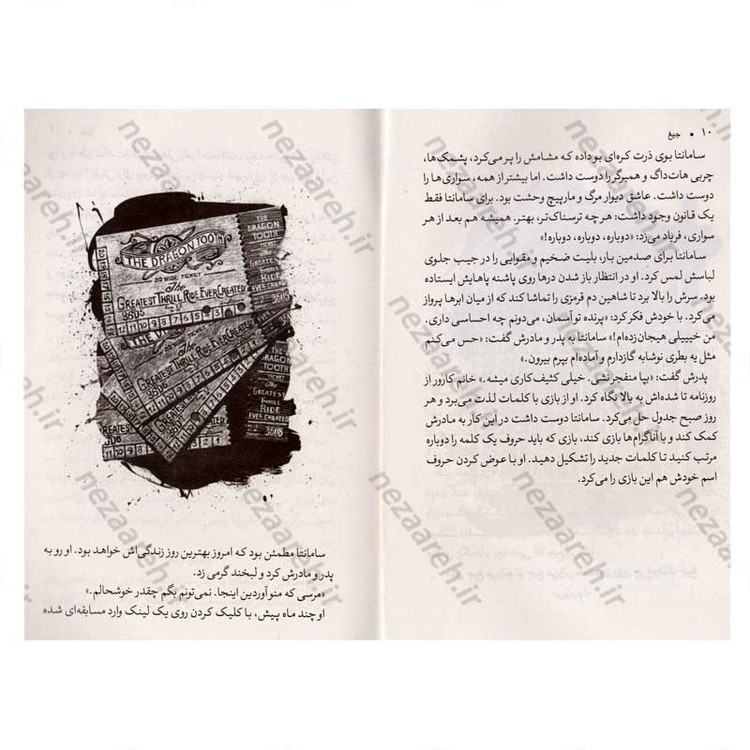 ۱۰ ▪ جیغ
سامانتا بوی ذرت کره‌ای بو داده که مشامش را پر می‌کرد، پشمک‌ها،
چربی هات‌داگ و همبرگر را دوست داشت. اما بیشتر از همه، سواری‌ها را
دوست داشت. عاشق دیوار مرگ و مارپیچ وحشت بود. برای سامانتا فقط
یک قانون وجود داشت: «هر چه ترسناک‌تر، بهتر. همیشه هم بعد از هر
سواری، فریاد می‌زد: «دوباره، دوباره، دوباره!»
سامانتا برای صدمین بار، بلیت ضخیم و مقوایی را در جیب جلوی
لباسش لمس کرد. او در انتظار باز شدن درها روی پاشنه پاهایش ایستاده
بود. سرش را بالا برد تا شاهین دم قرمزی را تماشا کند که از میان ابرها پرواز
می‌کرد. با خودش فکر کرد: «پرنده تو آسمان، می‌دونم چه احساسی داری.
من خیییلی هیجان‌زده‌ام!» سامانتا به پدر و مادرش گفت: «حس می‌کنم
مثل یه بطری نوشابه گازدارم و آماده‌ام بپرم بیرون.»
پدرش گفت: «بپا منفجر نشی. خیلی کثیف‌کاری میشه.» خانم کارور از
روزنامه تا شده‌اش به بالا نگاه کرد. او از بازی با کلمات لذت می‌برد و هر
روز صبح جدول حل می‌کرد. سامانتا دوست داشت در این کار به مادرش
کمک کند و با آناگرام‌ها بازی کند، بازی که باید حروف یک کلمه را دوباره
مرتب کنید تا کلمات جدید را تشکیل دهید. او با عوض کردن حروف
اسم خودش هم این بازی را می‌کرد.
THE DRAGON TOOTH
THE DRAGON TOOTH
RIDE TICKET
The
GREATEST THRILL RIDE EVER CREATED
3505
سامانتا مطمئن بود که امروز بهترین روز زندگی‌اش خواهد بود. او رو به
پدر و مادرش کرد و لبخند گرمی زد.
«مرسی که منو آوردین اینجا. نمی‌تونم بگم چقدر خوشحالم.»
او چند ماه پیش، با کلیک کردن روی یک لینک وارد مسابقه‌ای شده
nezaareh.ir